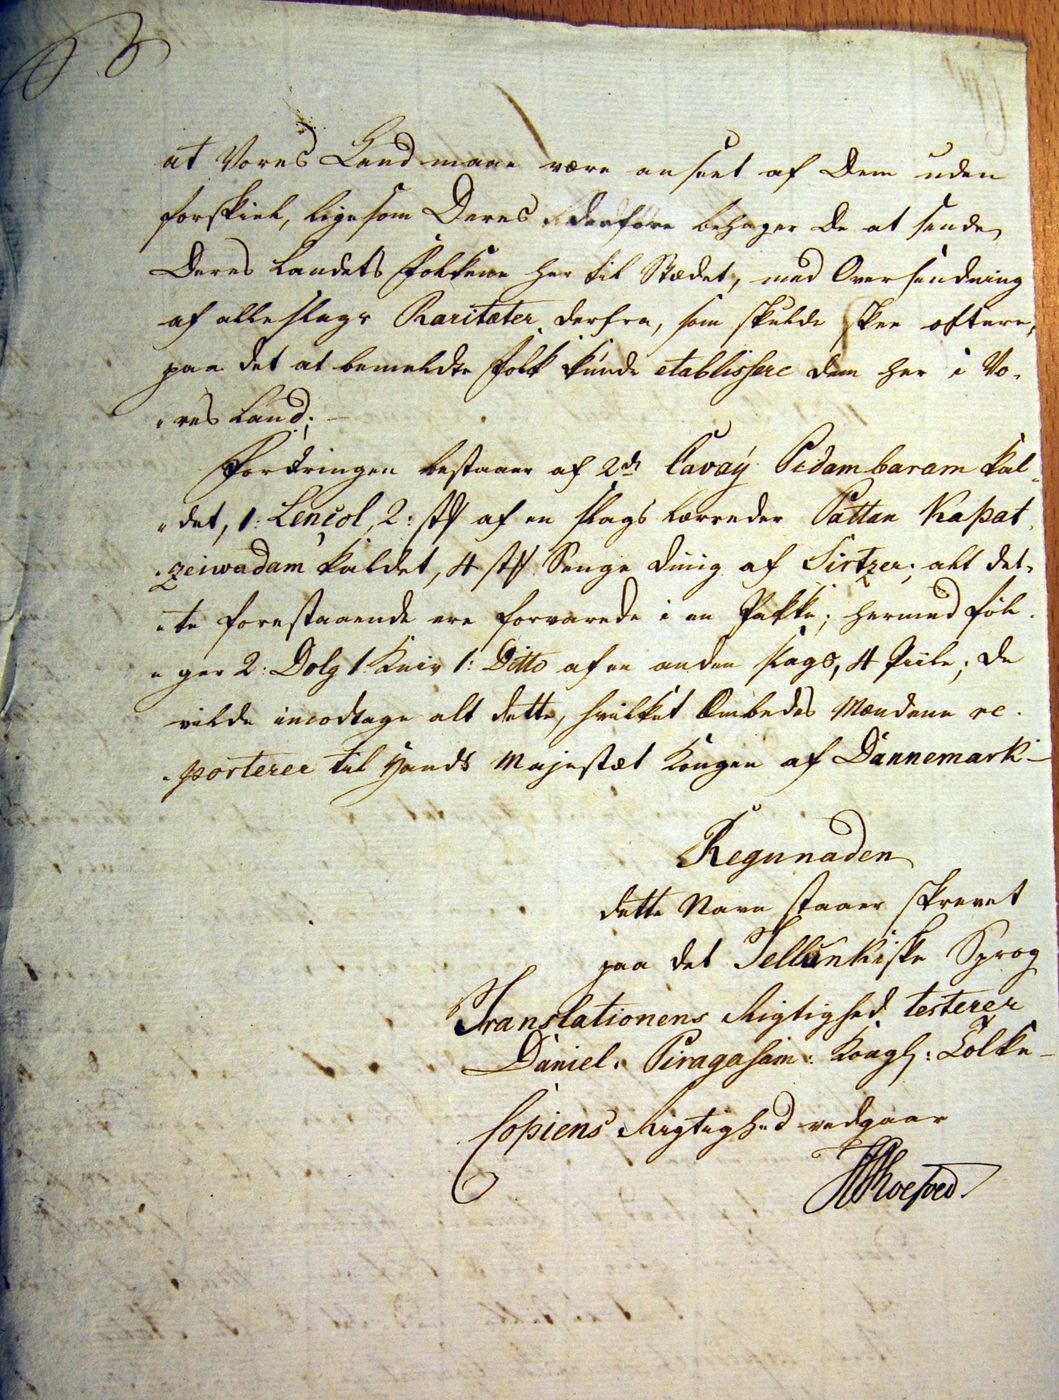 at Vores Land maae være anseet af Dem uden
forskiel, ligesom Deres derfore behager De at sende
Deres Landets Folkene her til Stædet, med Oversendning
af alle slags Rariteter derfra, som skulde skee oftere,
paa det at bemeldte Folk kunde etablissere dem her i Vo-
res Land;
Foræringen bestaaer af 2de Cavaÿ Pidambaram kal-
det, 1: Lençol, 2: stk af en slags Lærreder Pattan Kapat
zeiwadam kaldet, 4 stk Senge Duug af Sirtzer; alt det-
te forestaaende ere forvarede i en Pakke; hermed föl-
ger 2: Dolg 1 Kniv 1: Ditto af en anden slags, 4 Piile; De
vilde imodtage alt dette, hvilket Embeds Mændene re-
porterer til Hands Majestæt Kongen af Dannemark-
Regunaden
dette Navn staaer skrevet
paa det Tellunkiske Sprog
Translationens Rigtighed testerer
Daniel Piragasam: Kongl: Tolke
Copiens Rigtighed vedgaar